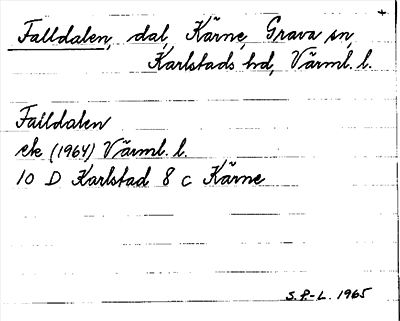 Falldalen, dal, Kärne, Grava sn,
Karlstads hd, Värml. l.
Falldalen
ek (1964) Värml. l.
10 D Karlstad 8 c Kärne
S.P.-L. 1965